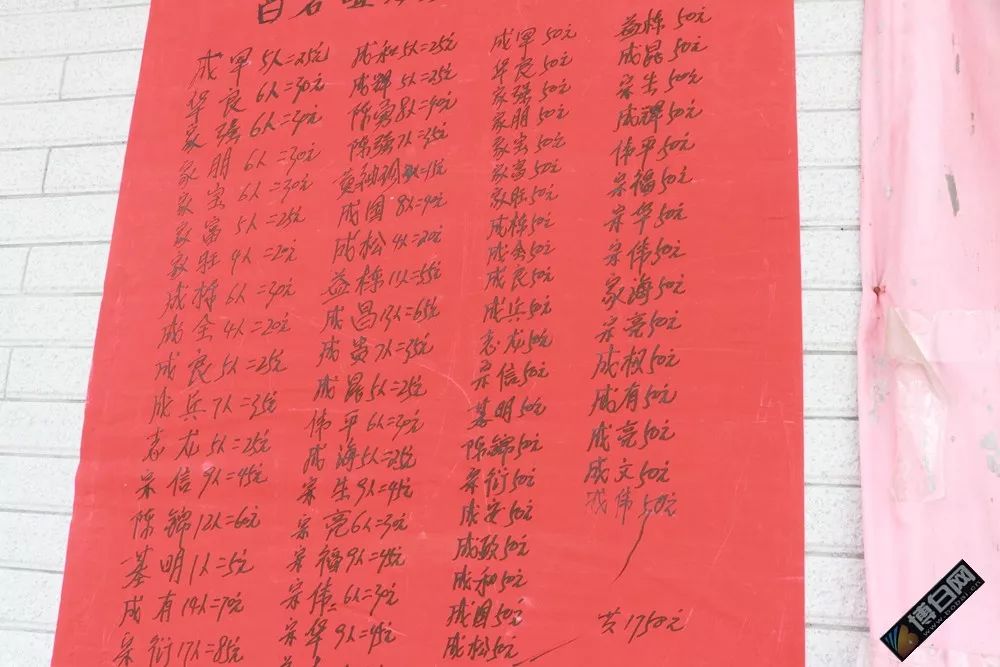 成军 5人=25元
华良 6人=30元
家强 6人=30元
家朋 6人=30元
家宝 6人=30元
家富 5人=25元
家旺 4人=20元
成栋 6人=30元
成全 4人=20元
成良 5人=25元
成兵 7人=35元
志龙 5人=25元
宗信 9人=45元
陈锦 12人=60元
基明 1人=5元
成有 14人=70元
宗衍 17人=85元
成和 5人=25元
成辉 5人=25元
陈勇 8人=40元
陈强 7人=35元
成国 8人=40元
成松 4人=20元
益栋 11人=55元
成昌 13人=65元
成贵 7人=35元
成昆 5人=25元
伟平 6人=30元
成海 5人=25元
宗生 9人=45元
宗亮 6人=30元
宗福 9人=45元
宗伟 6人=30元
宗华 9人=45元
成军 50元
华良 50元
家强 50元
家朋 50元
家宝 50元
家富 50元
家旺 50元
成栋 50元
成全 50元
成良 50元
成兵 50元
志龙 50元
宗信 50元
基明 50元
陈锦 50元
宗衍 50元
成安 50元
成和 50元
成国 50元
成松 50元
益栋 50元
成昆 50元
宗生 50元
成辉 50元
伟平 50元
宗福 50元
宗华 50元
宗伟 50元
家海 50元
宗亮 50元
成权 50元
成有 50元
成亮 50元
成文 50元
成伟 50元
共1750元
博白网
www.bobai.cn